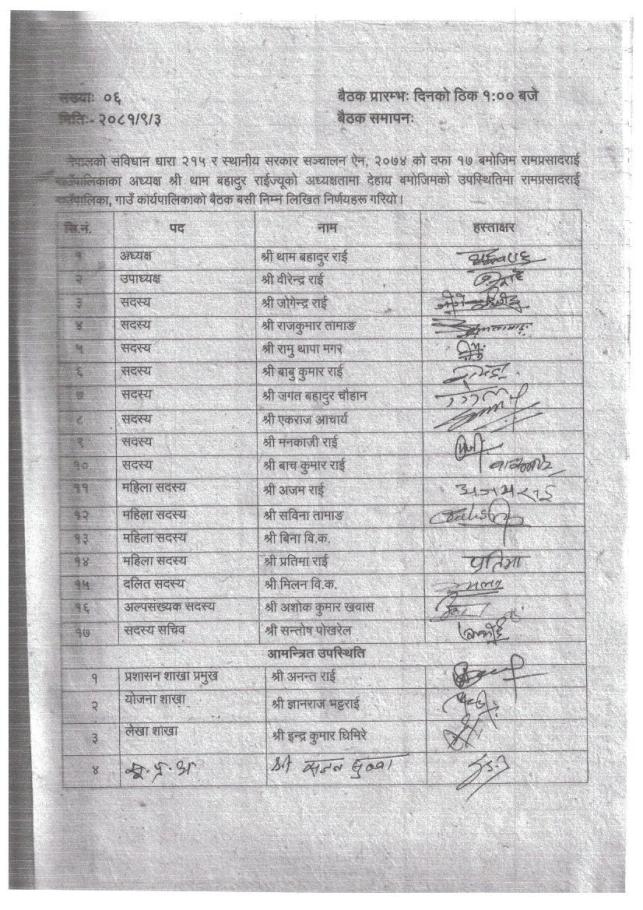 संख्याः ०६ बैठक प्रारम्भः दिनको ठिक १:०० बजे
मितिः- २०८१/९/३ बैठक समापनः
नेपालको संविधान धारा २१५ र स्थानीय सरकार सञ्चालन ऐन, २०७४ को दफा १७ बमोजिम रामप्रसादराई
गाउँपालिकाका अध्यक्ष श्री थाम बहादुर राईज्यूको अध्यक्षतामा देहाय बमोजिमको उपस्थितिमा रामप्रसादराई
गाउँपालिका, गाउँ कार्यपालिकाको बैठक बसी निम्न लिखित निर्णयहरू गरियो।
सि.नं. पद नाम हस्ताक्षर
१ अध्यक्ष श्री थाम बहादुर राई
२ उपाध्यक्ष श्री वीरेन्द्र राई
३ सदस्य श्री जोगेन्द्र राई
४ सदस्य श्री राजकुमार तामाङ
५ सदस्य श्री रामु थापा मगर
६ सदस्य श्री बाबु कुमार राई
७ सदस्य श्री जगत बहादुर चौहान
८ सदस्य श्री एकराज आचार्य
९ सदस्य श्री मनकाजी राई
१० सदस्य श्री बाच कुमार राई
११ महिला सदस्य श्री अजम राई अजमराई
१२ महिला सदस्य श्री सविना तामाङ
१३ महिला सदस्य श्री बिना वि.क.
१४ महिला सदस्य श्री प्रतिमा राई प्रतिमा
१५ दलित सदस्य श्री मिलन वि.क.
१६ अल्पसंख्यक सदस्य श्री अशोक कुमार खवास
१७ सदस्य सचिव श्री सन्तोष पोखरेल
आमन्त्रित उपस्थिति
१ प्रशासन शाखा प्रमुख श्री अनन्त राई
२ योजना शाखा श्री ज्ञानराज भट्टराई
३ लेखा शाखा श्री इन्द्र कुमार घिमिरे
४ सू.प्र.अ श्री